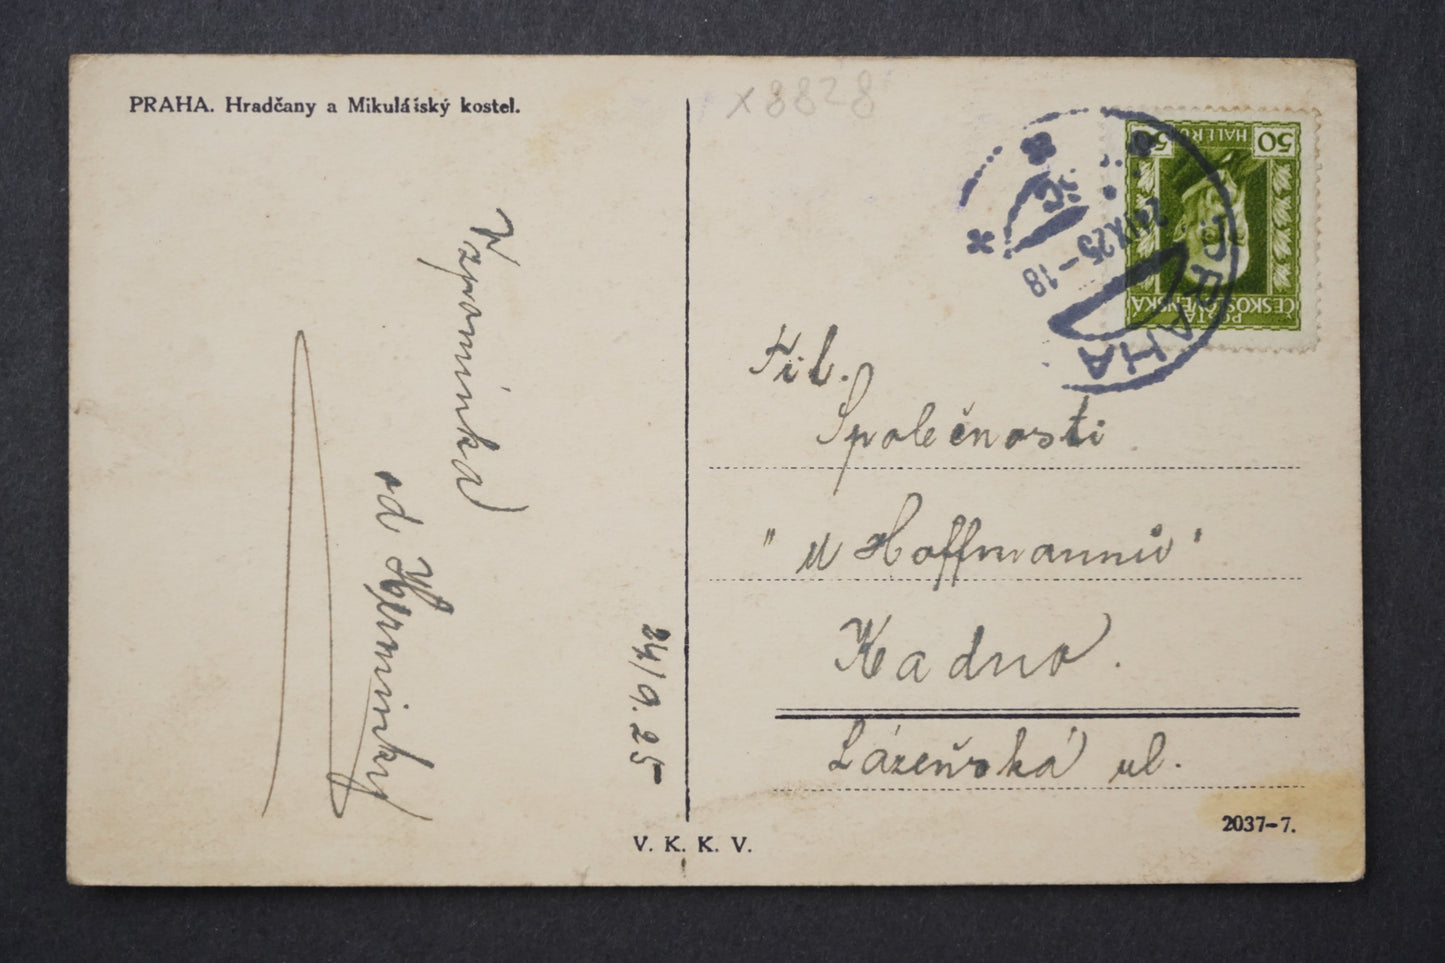 PRAHA. Hradčany a Mikulášský kostel.
x 8828
Vzpomínka
od Herminky
24/9.25
50 50
HALÉŘŮ
POŠTA
ČESKOSLOVENSKÁ
PRAHA
24.IX.25-18
Til.
Společnosti
"u Hoffmannů"
Kadno.
Lázeňská ul.
2037-7.
V. K. K. V.